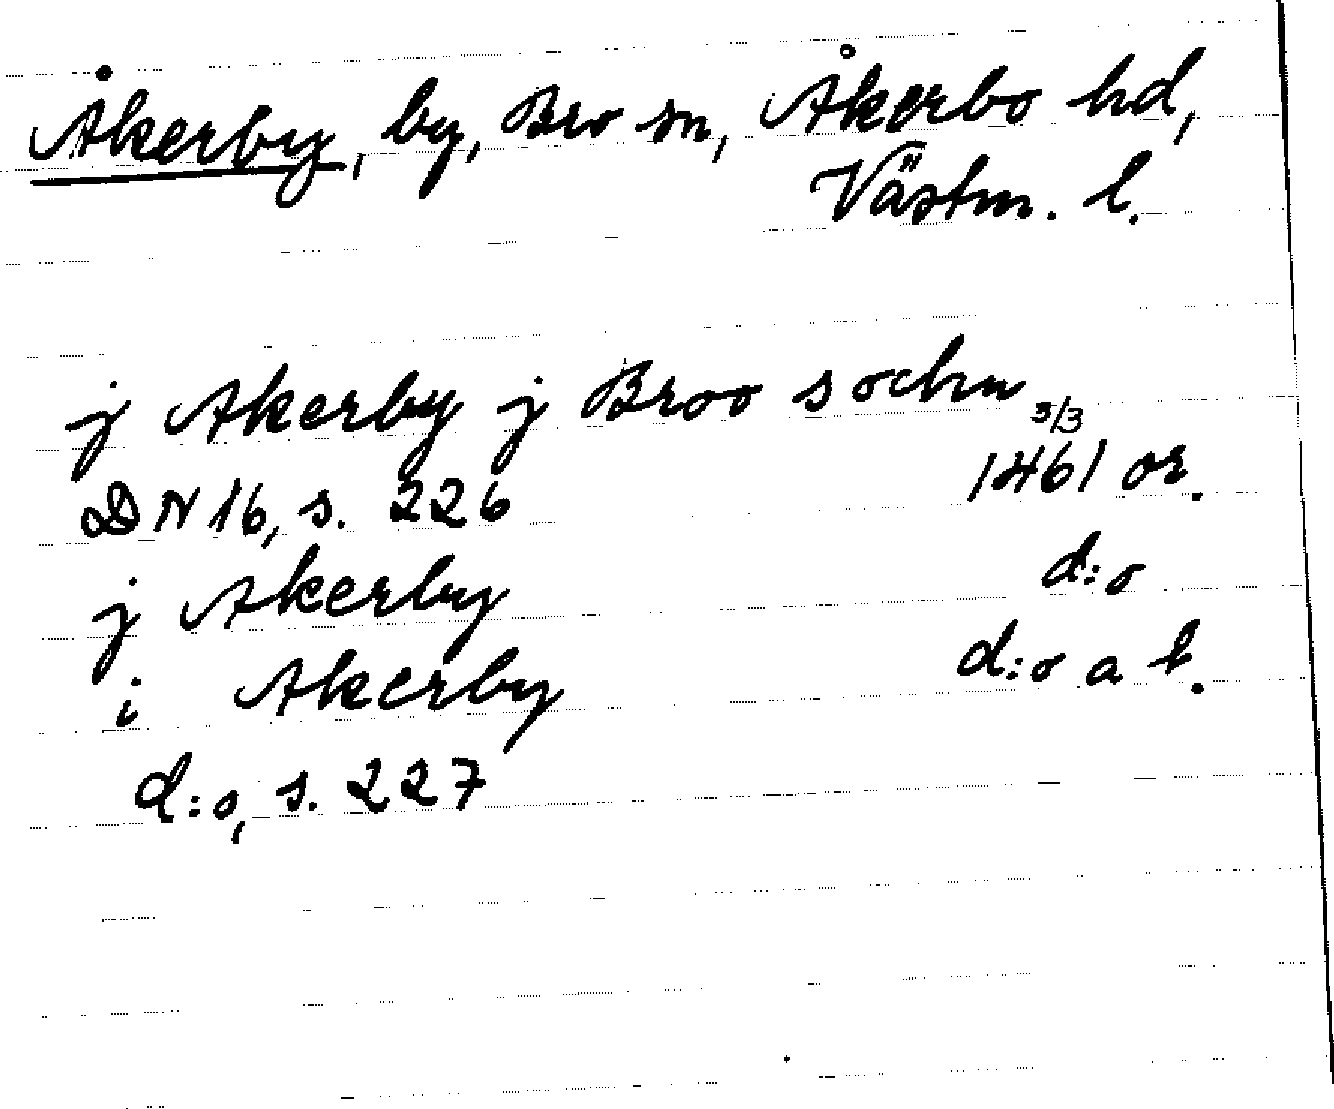 Åkerby, by, Bro sn, Åkerbo hd,
Västm. l.
j Akerby j Broo sochn
3/3
DN 16, s. 226 1461 or.
j Akerby d:o
i Akerby d:o a t.
d:o, s. 227